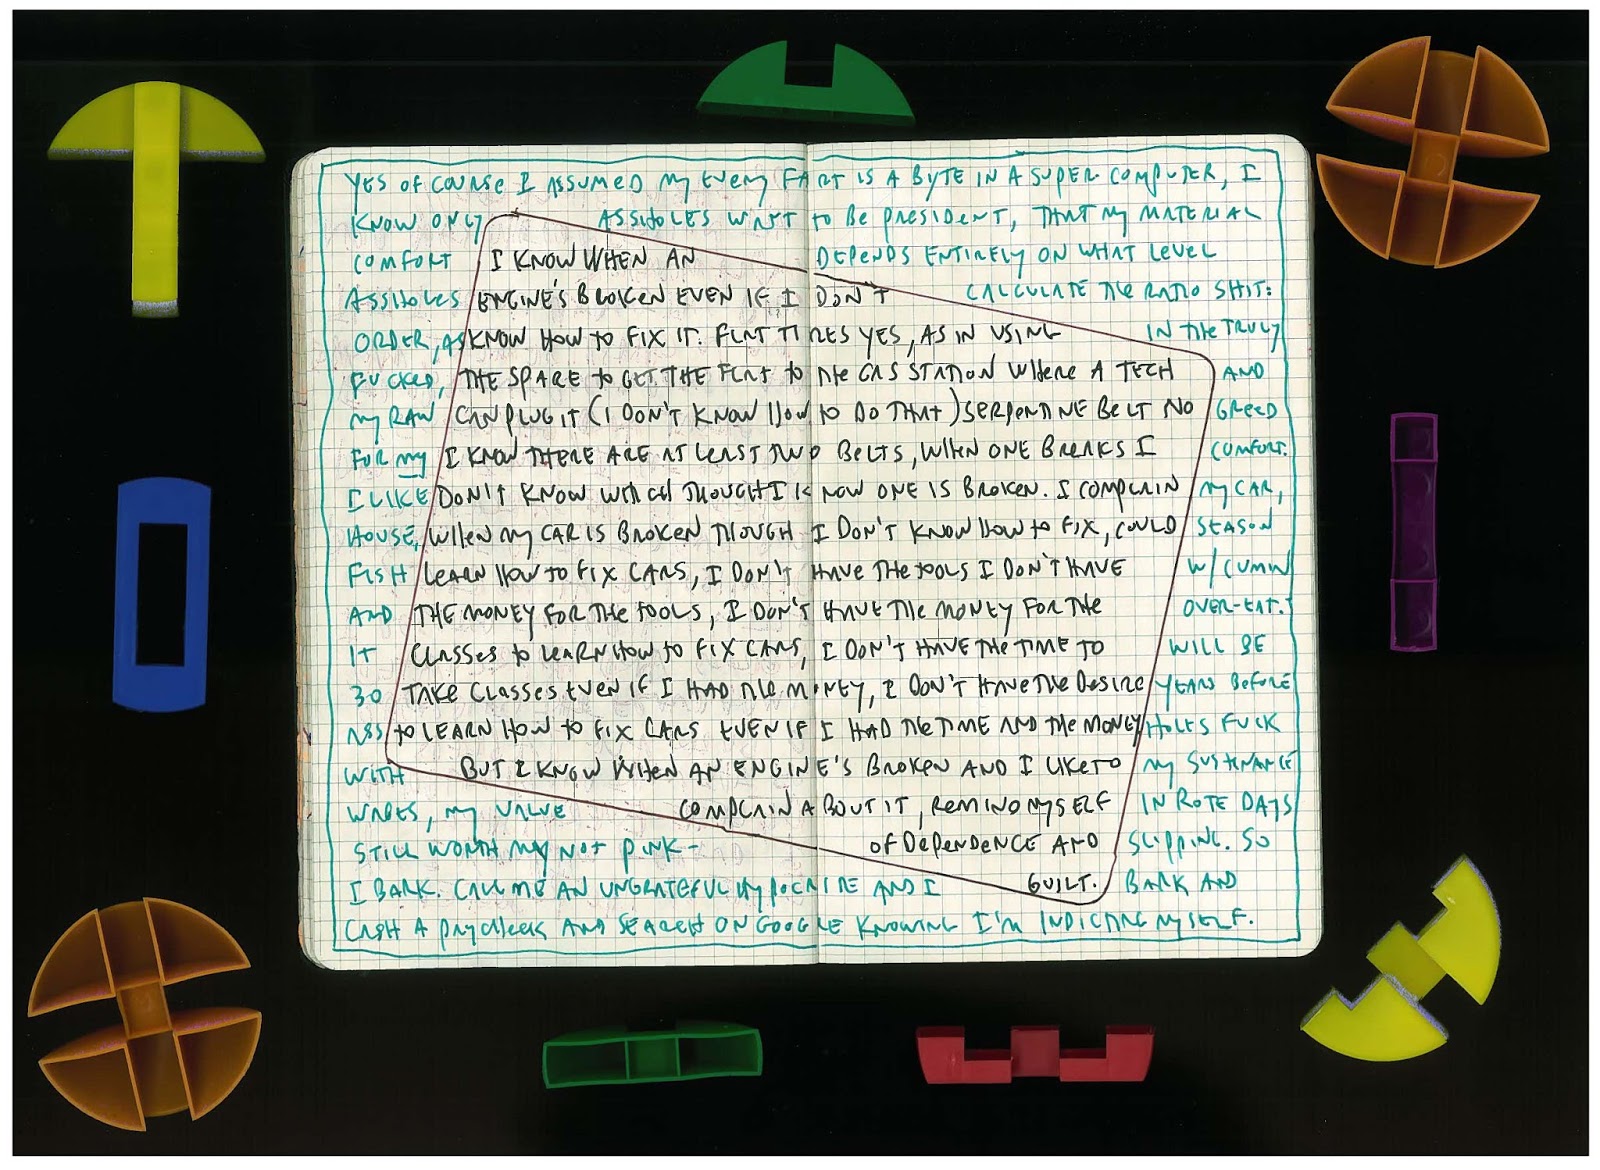 YES OF COURSE I ASSUMED MY EVERY FART IS A BYTE IN A SUPER COMPUTER, I
KNOW ONLY ASSHOLES WANT TO BE PRESIDENT, THAT MY MATERIAL
COMFORT DEPENDS ENTIRELY ON WHAT LEVEL
ASSHOLES CALCULATE THE RATIO SHIT:
ORDER, AS IN THE TRULY
FUCKED, AND
MY RAW GREED
FOR MY COMFORT.
I LIKE MY CAR,
HOUSE, SEASON
FISH W/CUMIN
AND OVER-EAT.
IT WILL BE
30 YEARS BEFORE
ASSHOLES FUCK
WITH MY SUSTENANCE
WAGES, MY VALUE IN ROTE DAYS
STILL WORTH MY NOT PINK-SLIPPING. SO
I BARK. CALL ME AN UNGRATEFUL HYPOCRITE AND I BARK AND
CASH A PAYCHECK AND SEARCH ON GOOGLE KNOWING I'M INDICTING MYSELF.
I KNOW WHEN AN
ENGINE'S BROKEN EVEN IF I DON'T
KNOW HOW TO FIX IT. FLAT TIRES YES, AS IN USING
THE SPARE TO GET THE FLAT TO THE GAS STATION WHERE A TECH
CAN PLUG IT (I DON'T KNOW HOW TO DO THAT) SERPENTINE BELT NO
I KNOW THERE ARE AT LEAST TWO BELTS, WHEN ONE BREAKS I
DON'T KNOW WHICH THOUGH I KNOW ONE IS BROKEN. I COMPLAIN
WHEN MY CAR IS BROKEN THOUGH I DON'T KNOW HOW TO FIX, COULD
LEARN HOW TO FIX CARS, I DON'T HAVE THE TOOLS I DON'T HAVE
THE MONEY FOR THE TOOLS, I DON'T HAVE THE MONEY FOR THE
CLASSES TO LEARN HOW TO FIX CARS, I DON'T HAVE THE TIME TO
TAKE CLASSES EVEN IF I HAD THE MONEY, I DON'T HAVE THE DESIRE
TO LEARN HOW TO FIX CARS EVEN IF I HAD THE TIME AND THE MONEY
BUT I KNOW WHEN AN ENGINE'S BROKEN AND I LIKE TO
COMPLAIN ABOUT IT, REMIND MYSELF
OF DEPENDENCE AND
GUILT.